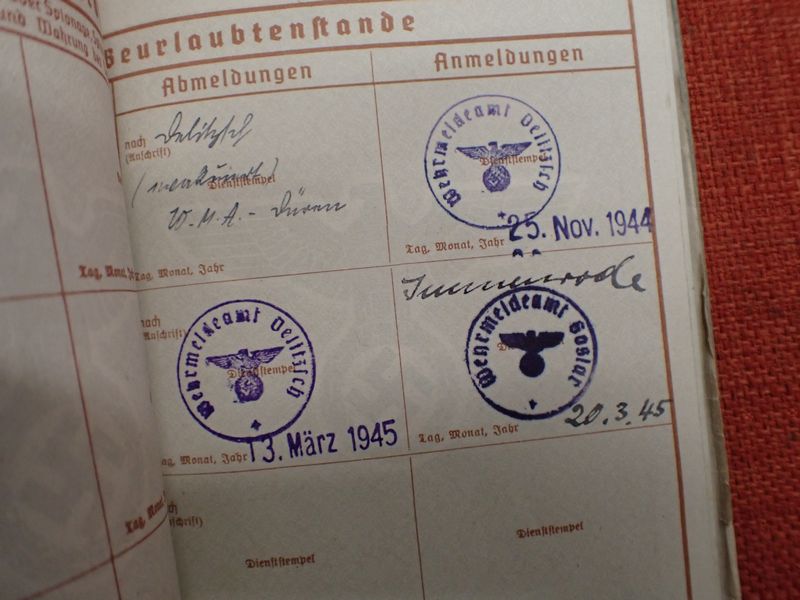 Beurlaubtenstande
Abmeldungen
Anmeldungen
nach Delitzsch
(Anschrift)
Dienststempel
W.M.A. - Düren
Tag, Monat, Jahr
Wehrmeldeamt Delitzsch
Dienststempel
25. Nov. 1944
Tag, Monat, Jahr
nach
Wehrmeldeamt Delitzsch
Dienststempel
13. März 1945
Tag, Monat, Jahr
Immenrode
Wehrmeldeamt Goslar
20.3.45
Tag, Monat, Jahr
Dienststempel
Dienststempel
und Wahrung
Tag, Monat
Tag, Monat